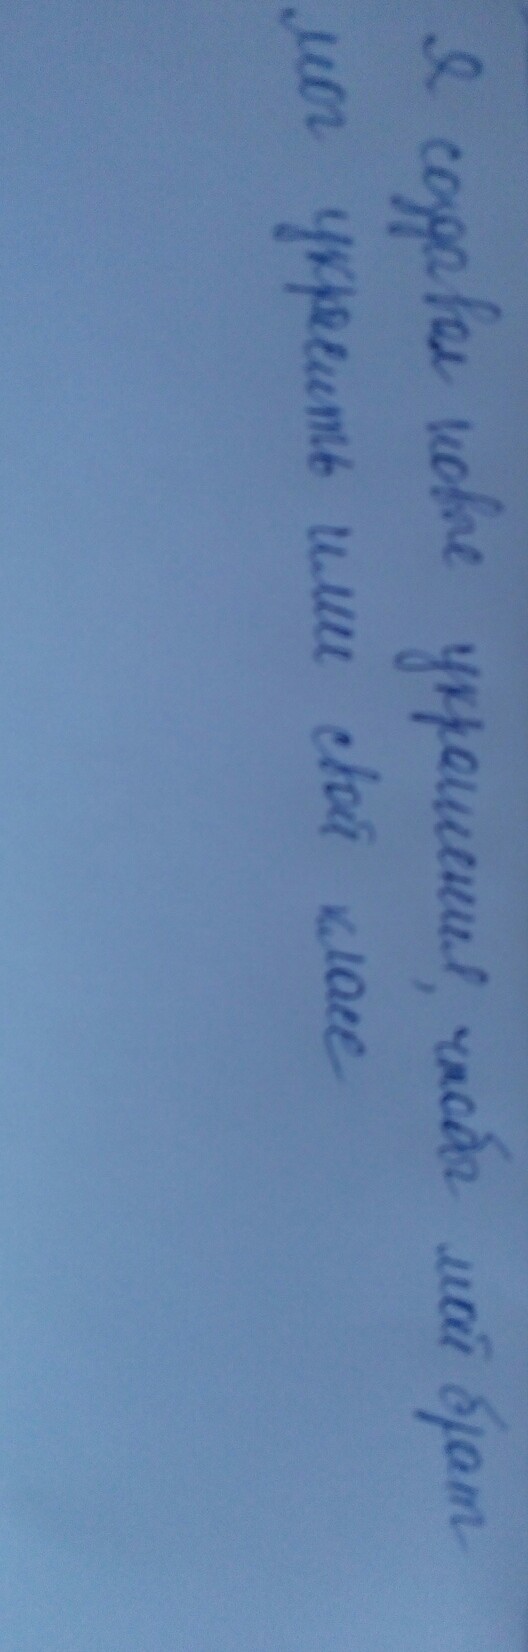 Я создавал новые украшения, чтобы мой брат
мог украсить ими свой класс